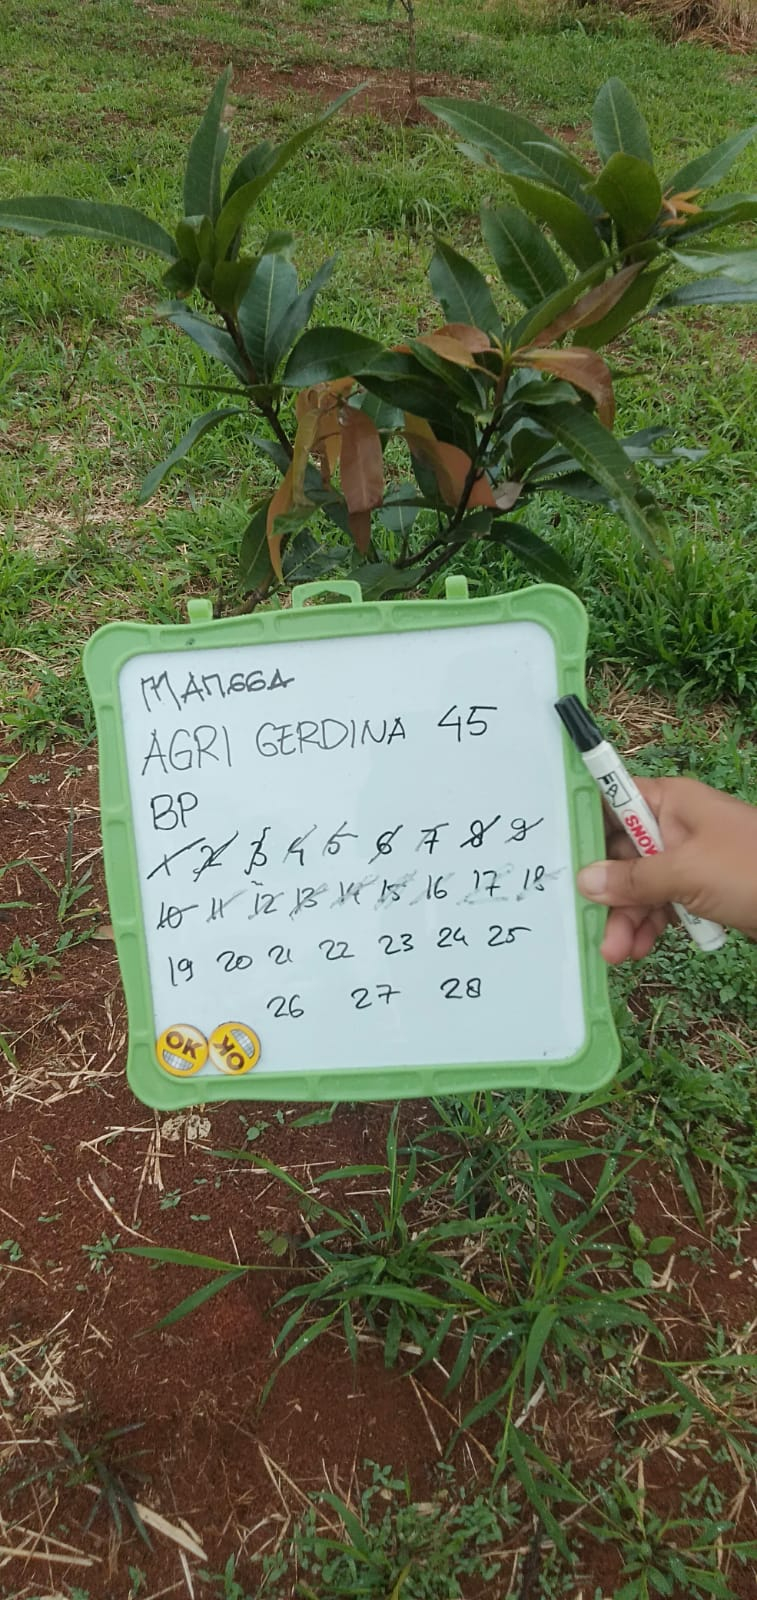 MANGGA
AGRI GERDINA 45
BP
1 2 3 4 5 6 7 8 9
10 11 12 13 14 15 16 17 18
19 20 21 22 23 24 25
26 27 28
OK OK
SNOW